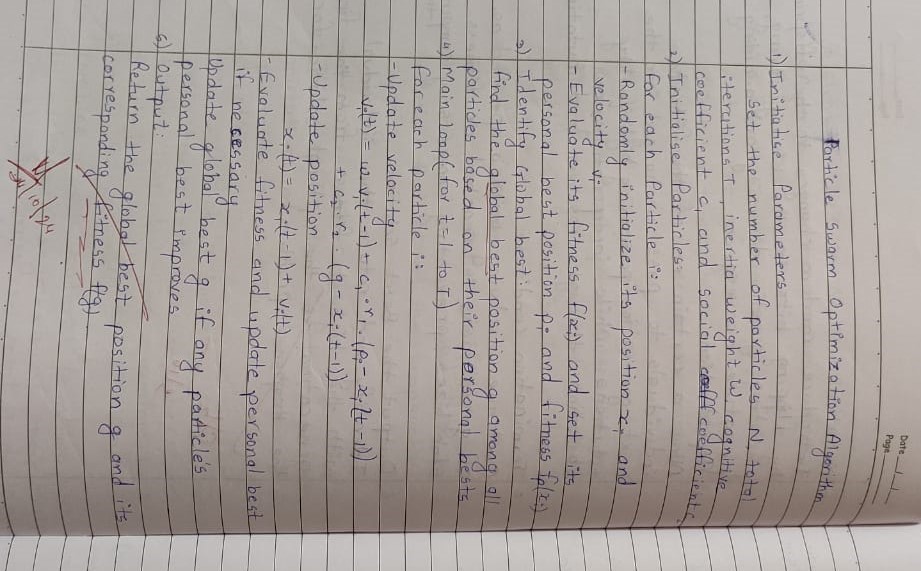 Date / /
Page
Particle Swarm Optimization Algorithm
1) Initialise Parameters
Set the number of particles N, total
iterations T, inertia weight w, cognitive
coefficient c, and social coefficient c
2) Initialise Particles:
for each Particle i:
- Randomly initialize its position xi and
velocity vi
- Evaluate its fitness f(xi) and set its
personal best position pi and fitness fp(xi)
3) Identify Global best:
find the global best position g among all
particles based on their personal bests
4) Main loop (for t = 1 to T)
for each particle i:
- Update velocity
vi(t) = w.vi(t-1) + c1.r1.(pi - xi(t-1))
+ c2.r2.(g - xi(t-1))
- Update position
xi(t) = xi(t-1) + vi(t)
- Evaluate fitness and update personal best
if necessary
Update global best g if any particle's
personal best improves
5) Output:
Return the global best position g and its
corresponding fitness f(g).